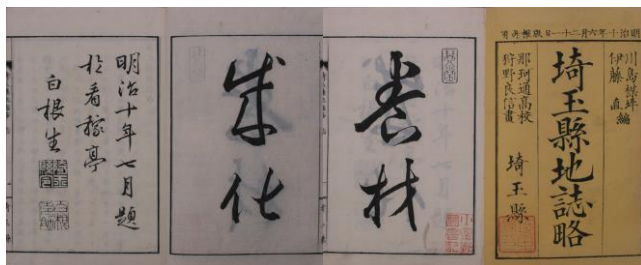 明治十年六月二十一日版權所有
川島楳坪
伊藤 直 編
埼玉縣地誌略
那珂通高校
狩野良信畫
埼玉縣
養材
成化
明治十年七月題
於看稼亭
白根生